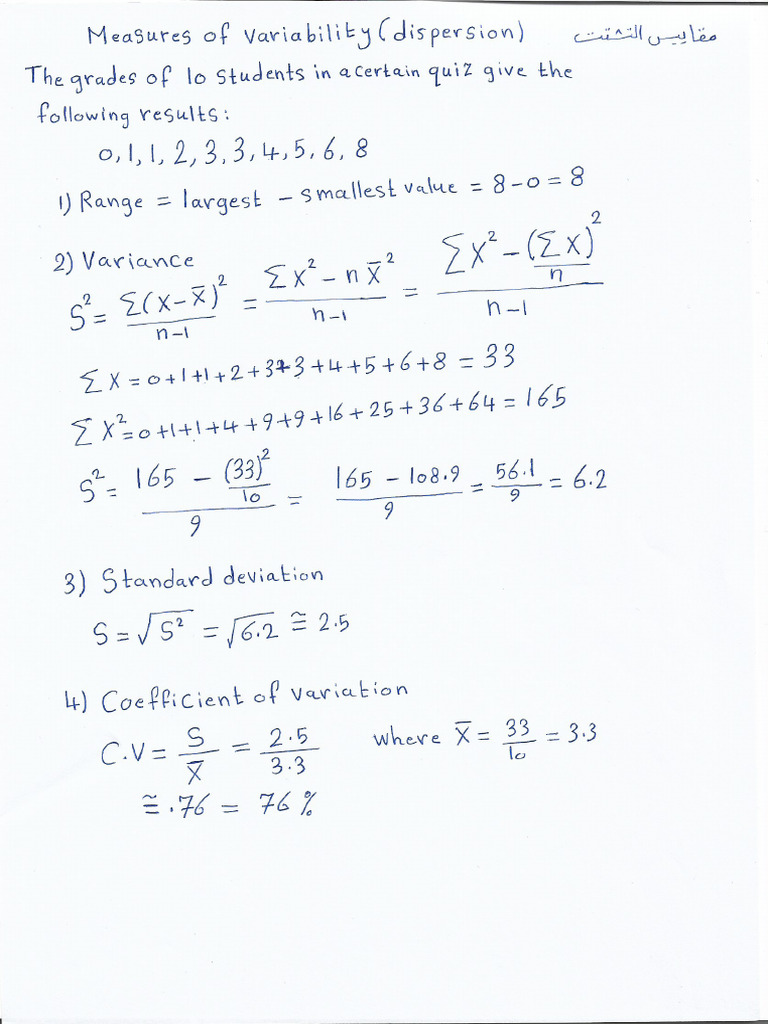 Measures of variability (dispersion) مقاييس التشتت
The grades of 10 students in a certain quiz give the
following results:
0, 1, 1, 2, 3, 3, 4, 5, 6, 8
1) Range = largest - smallest value = 8 - 0 = 8
2) Variance
S² = Σ(X - X̄)² / n-1 = ΣX² - nX̄² / n-1 = ΣX² - (ΣX)²/n / n-1
ΣX = 0+1+1+2+3+3+4+5+6+8 = 33
ΣX² = 0+1+1+4+9+9+16+25+36+64 = 165
S² = 165 - (33)²/10 / 9 = 165 - 108.9 / 9 = 56.1 / 9 = 6.2
3) Standard deviation
S = √S² = √6.2 ≅ 2.5
4) Coefficient of variation
C.V = S / X̄ = 2.5 / 3.3 where X̄ = 33 / 10 = 3.3
≅ .76 = 76 %